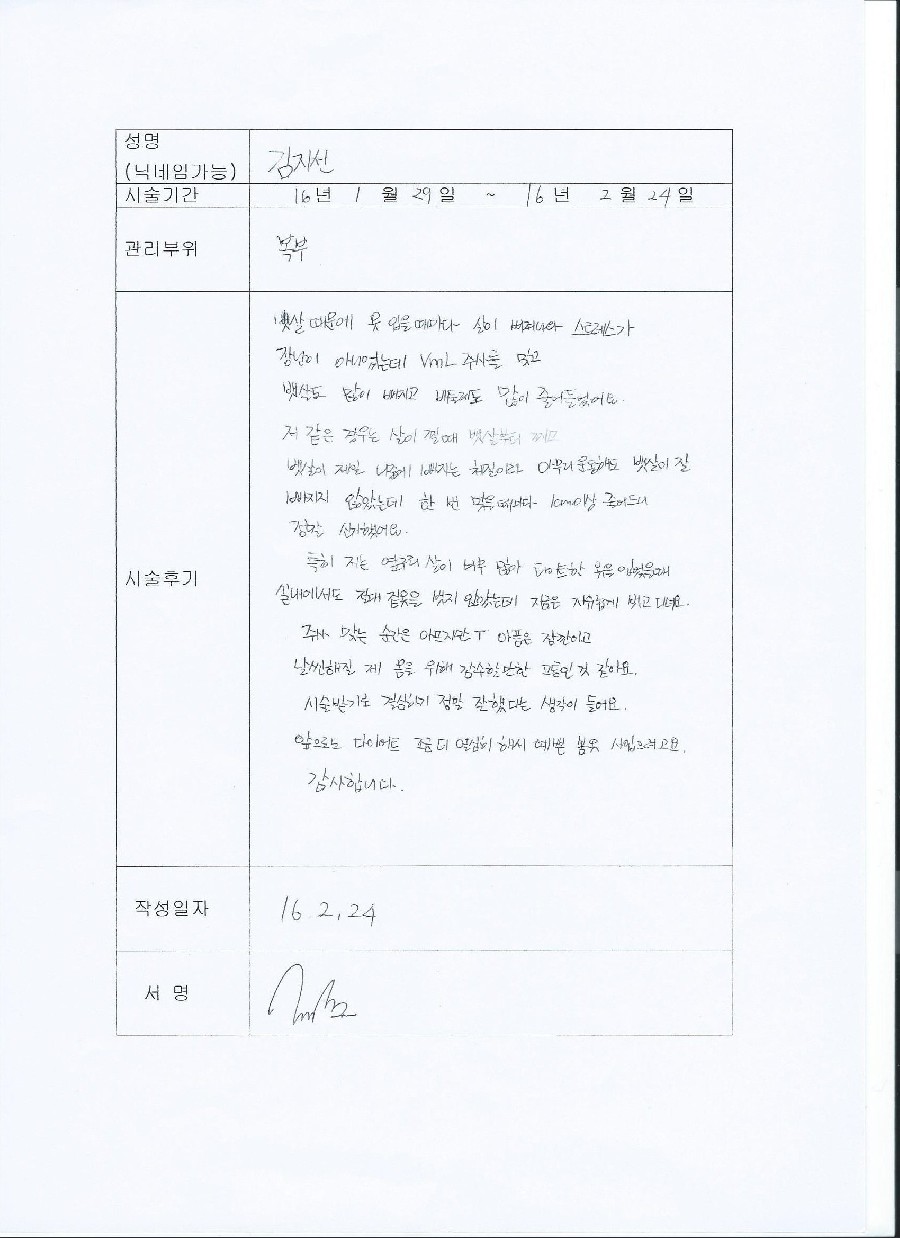 성명
(닉네임가능)
김지선
시술기간 16년 1월 29일 ~ 16년 2월 24일
관리부위 복부
시술후기
뱃살 때문에 옷 입을때마다 살이 삐져나와 스트레스가
장난이 아니었는데 VmL 주사를 맞고
뱃살도 많이 빠지고 바둘레도 많이 줄어들었어요.
저 같은 경우는 살이 찔때 뱃살부터 찌고
뱃살이 제일 나중에 빠지는 체질이라 아무리 운동해도 뱃살이 잘
빠지지 않았는데 한 번 맞을때마다 1cm이상 줄어드니
정말 신기했어요.
특히 저는 옆구리 살이 너무 많아 타이트한 옷을 입었을때
실내에서도 절대 겉옷을 벗지 않았는데 지금은 자유롭게 벗고 다녀요.
주사 맞는 순간은 아프지만 아픔은 잠깐이고
날씬해질 제 몸을 위해 감수할만한 고통인 것 같아요.
시술받기로 결심하기 정말 잘했다는 생각이 들어요.
앞으로는 다이어트 조금 더 열심히 해서 예쁜 봄옷 사입으려고요.
감사합니다.
작성일자 16.2.24
서 명